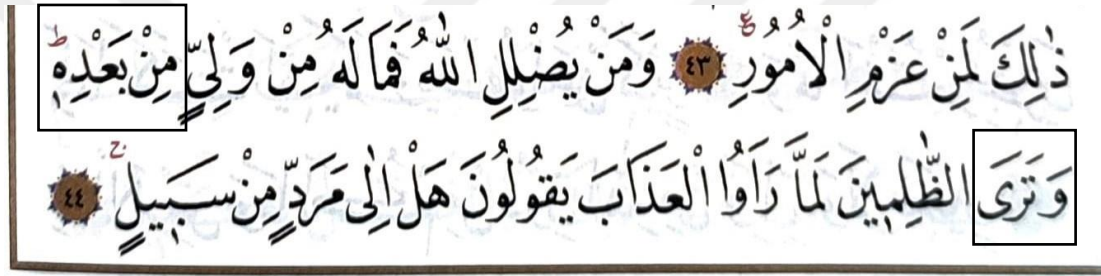 ذٰلِكَ لَمِنْ عَزْمِ الْاُمُوْرِ ࣖ ﴿٤٣﴾ وَمَنْ يُّضْلِلِ اللّٰهُ فَمَا لَهٗ مِنْ وَّلِيٍّ مِّنْۢ بَعْدِهٖ ؕ
وَتَرَى الظّٰلِمِيْنَ لَمَّا رَاَوُا الْعَذَابَ يَقُوْلُوْنَ هَلْ اِلٰى مَرَدٍّ مِّنْ سَبِيْلٍ ۚ ﴿٤٤﴾